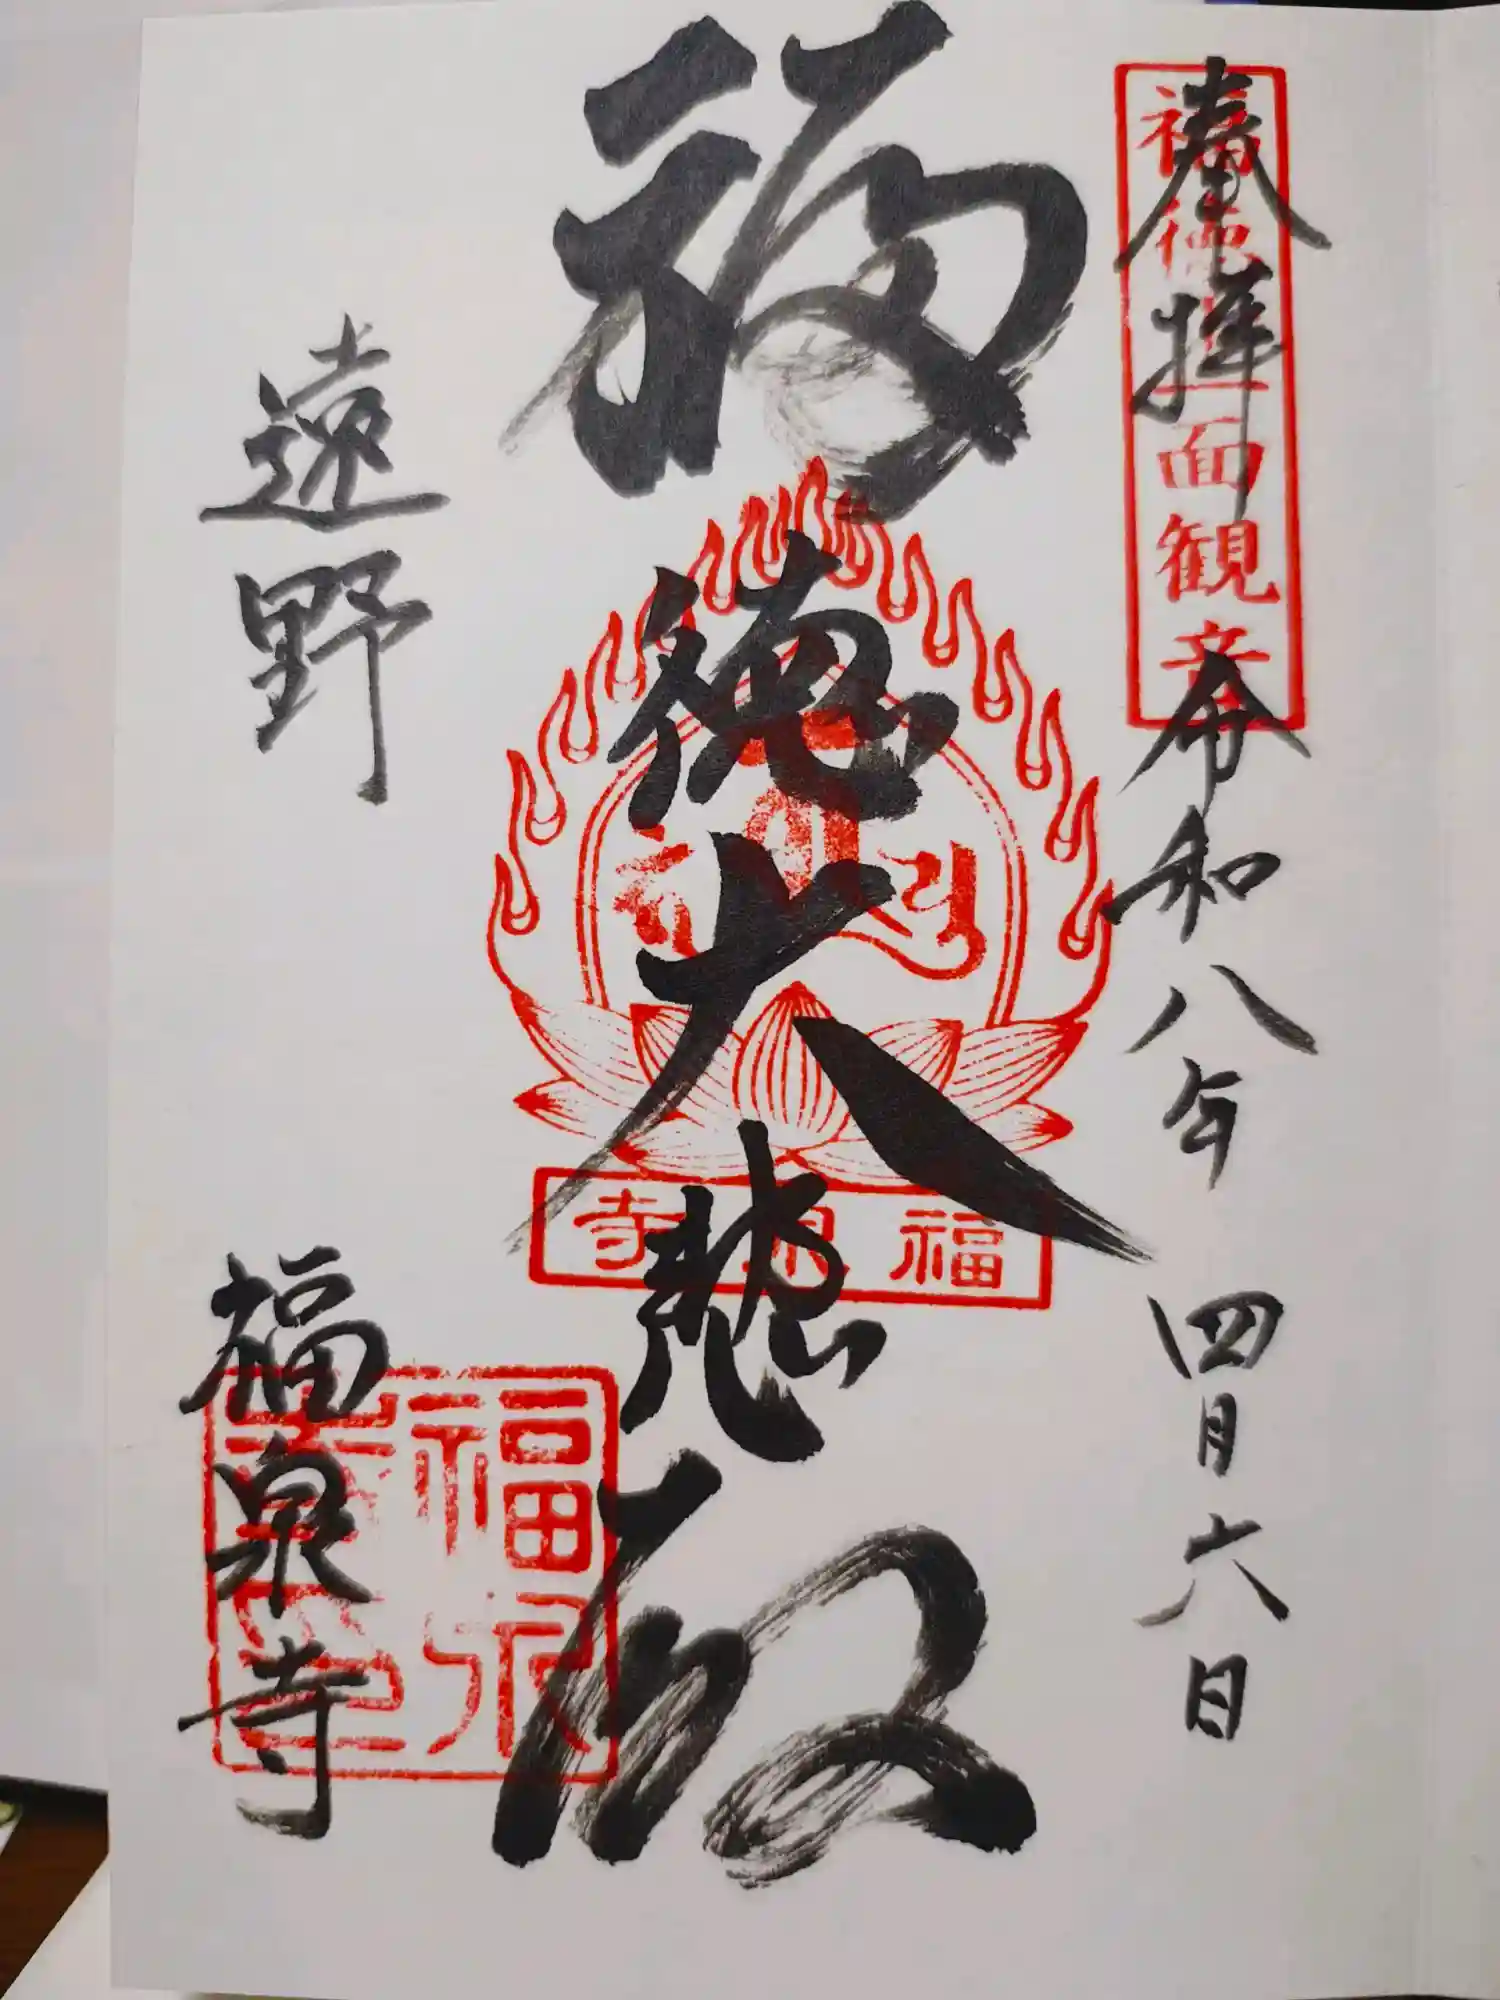 奉拝
令和八年 四月六日
福徳十一面観音
福徳大慈殿
福泉寺
遠野
福泉寺